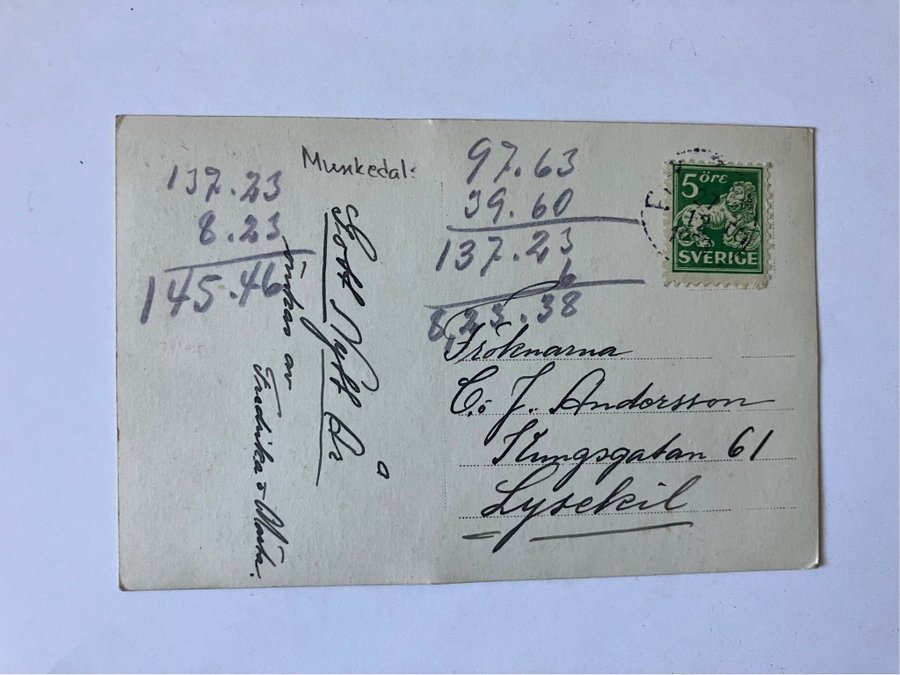 137.23
8.23
145.46
Munkedal:
Gott Nytt År
önskas av
Fredrika & Märta.
97.63
39.60
137.23
6
8,23.38
5 öre
SVERIGE
Fröknarna
C. J. Andersson
Kungsgatan 61
Lysekil